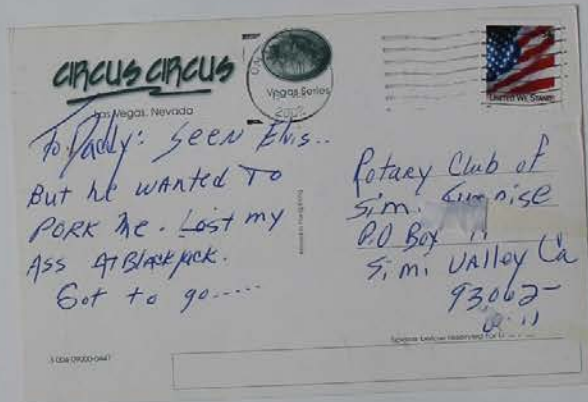 CIRCUS CIRCUS
Las Vegas, Nevada
Vegas Series
United We Stand
To Daddy: SEEN Elvis..
But he wanted To
PORK me. Lost my
ASS AT Blackjack.
Got to go.....
Rotary Club of
Simi Sunrise
P.O Box 11
Simi Valley Ca
93062-
Space below reserved for